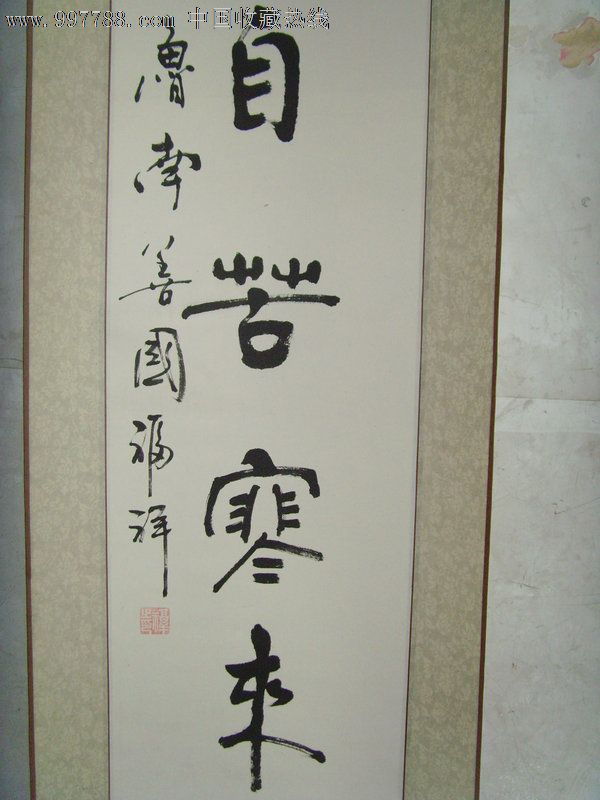 www.997788.com 中国收藏热线
自苦寒來
魯南善國福祥